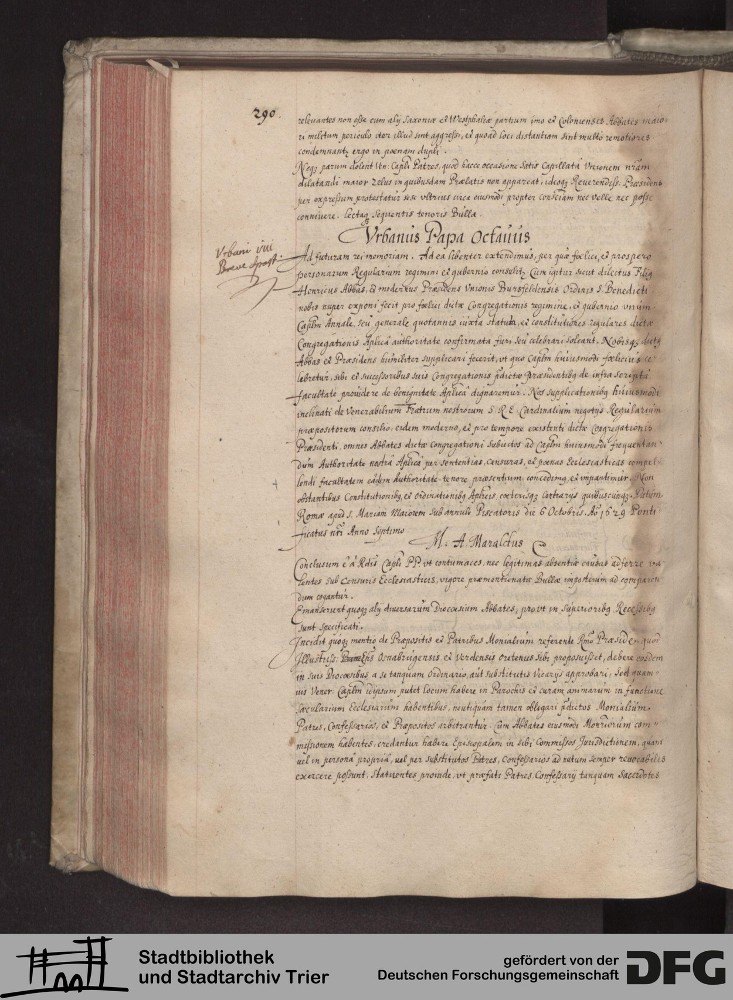 290.
releuantes non esse cum alij Saxoniæ et Westphaliæ partium imo et Colonienses Abbates maio-
ri militum periculo iter illud sint aggressi, et quoad loci distantiam sint multo remotiores
condemnant, ergo in poenam dupli.
Neqз parum dolent Ven: Capli Patres, quod hacce occasione satis Capellatã Vnionem nrãm
dilatandi maior zelus in quibusdam Prælatis non appareat, ideoqз Reuerendiss. Præsidens
per expressum protestatur se se vlterius circa eiusmodi propter consciam nec velle nec posse
conniuere. lectaqз sequentis tenoris Bulla.
Vrbanus Papa Octauus
Vrbani viii
Breve Apost.
Ad futuram rei memoriam. Ad ea libenter extendimus, per quæ foelici, et prospero
personarum Regularium regimini et gubernio consulit, Cum igitur sicut dilectus Filiq
Henricus Abbas, et modernus Præsidens Vnionis Bursfeldensis Ordinis S. Benedicti
nobis nuper exponi fecit pro foelici dictæ Congregationis regimine, et gubernio vnum
Caplm Annale, seu generale quotannis iuxta statuta, et constitutiones regulares dictæ
Congregationis Aplica authoritate confirmata fieri seu celebrari soleant. Nobisqз dictq
Abbas et Præsidens humiliter supplicari fecerit, vt quo Caplm huiusmodi foelicius ce-
labretur, sibi et successoribus suis Congregationis pdictæ Præsidentibq de infrascripta
facultate prouidere de benignitate Aplica dignaremur. Nos supplicationibq huiusmodi
inclinati de Venerabilium Fratrum nostrorum S. R. E. Cardinalium negotijs Regularium
præpositorum consilio, eidem moderno, et pro tempore existenti dictæ Congregationis
Præsidenti, omnes Abbates dictæ Congregationi subiectos ad Caplm huiusmodi frequentan-
dum Authoritate nostra Aplica per sententias, censuras, et poenas Ecclesiasticas compel-
lendi facultatem eadem Authoritate tenore præsentium concedimq et impartimur. Non
obstantibus Constitutionibq et Ordinationibq Aplicis coeterisqз contrarijs quibuscunqз. Datum
Romæ apud S. Mariam Maiorem sub annulo Piscatoris die 6 Octobris Ao 1629 Ponti-
ficatus nri Anno Septimo
M. A. Maraldus
Conclusum e a Rdis Capli PP. vt contumaces, nec legitimas absentiæ causas adferre va-
lentes sub Censuris Ecclesiasticis, vigore præmentionatæ Bullæ imposterum ad comparen-
dum cogantur.
Emanserunt quoqз alij diuersarum Dioecesium Abbates, prout in superioribq Recessibq
sunt specificati.
Incidit quoqз mentio de Præpositis et Patribus Monialium referente Rmo Præside, quod
Illustriss: Epus Osnabrugensis et Verdensis oretenus sibi proposuisset, debere eosdem
in suis Dioecesibus a se tanquam Ordinario, aut substitutis Vicarijs approbari, Sed quam-
uis Vener. Caplm id ipsum putet locum habere in Parochis et curam animarum in functione
sæcularium Ecclesiarum habentibus, neutiquam tamen obligari pdictos Monialium
Patres, Confessarios, et Præpositos arbitrantur. Cum Abbates eiusmodi Monriorum com-
missionem habentes, credantur habere Episcopalem in sibi Commissos Jurisdictionem, quam
uel in persona propria, uel per substitutos Patres, Confessarios ad nutum semper reuocabiles
exercere possunt. statuentes proinde, vt præfati Patres, Confessarij tanquam Sacerdotes
Stadtbibliothek
und Stadtarchiv Trier
gefördert von der
Deutschen Forschungsgemeinschaft
DFG